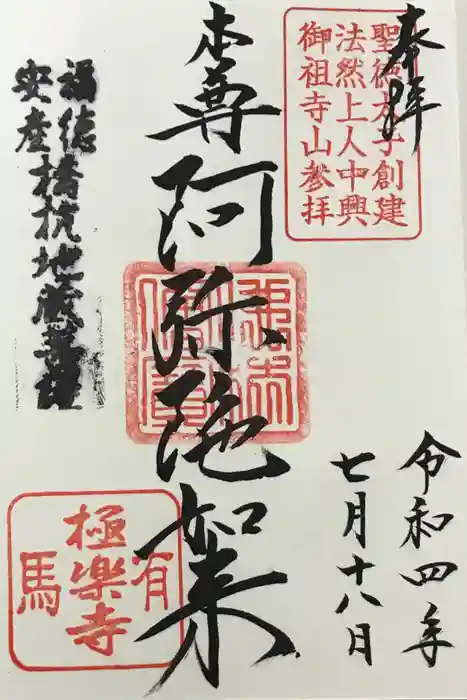 奉拝
聖徳太子創建
法然上人中興
御祖寺山参拝
本尊阿弥陀如来
福徳
安産
地蔵尊
令和四年
七月十八日
有馬
極楽寺